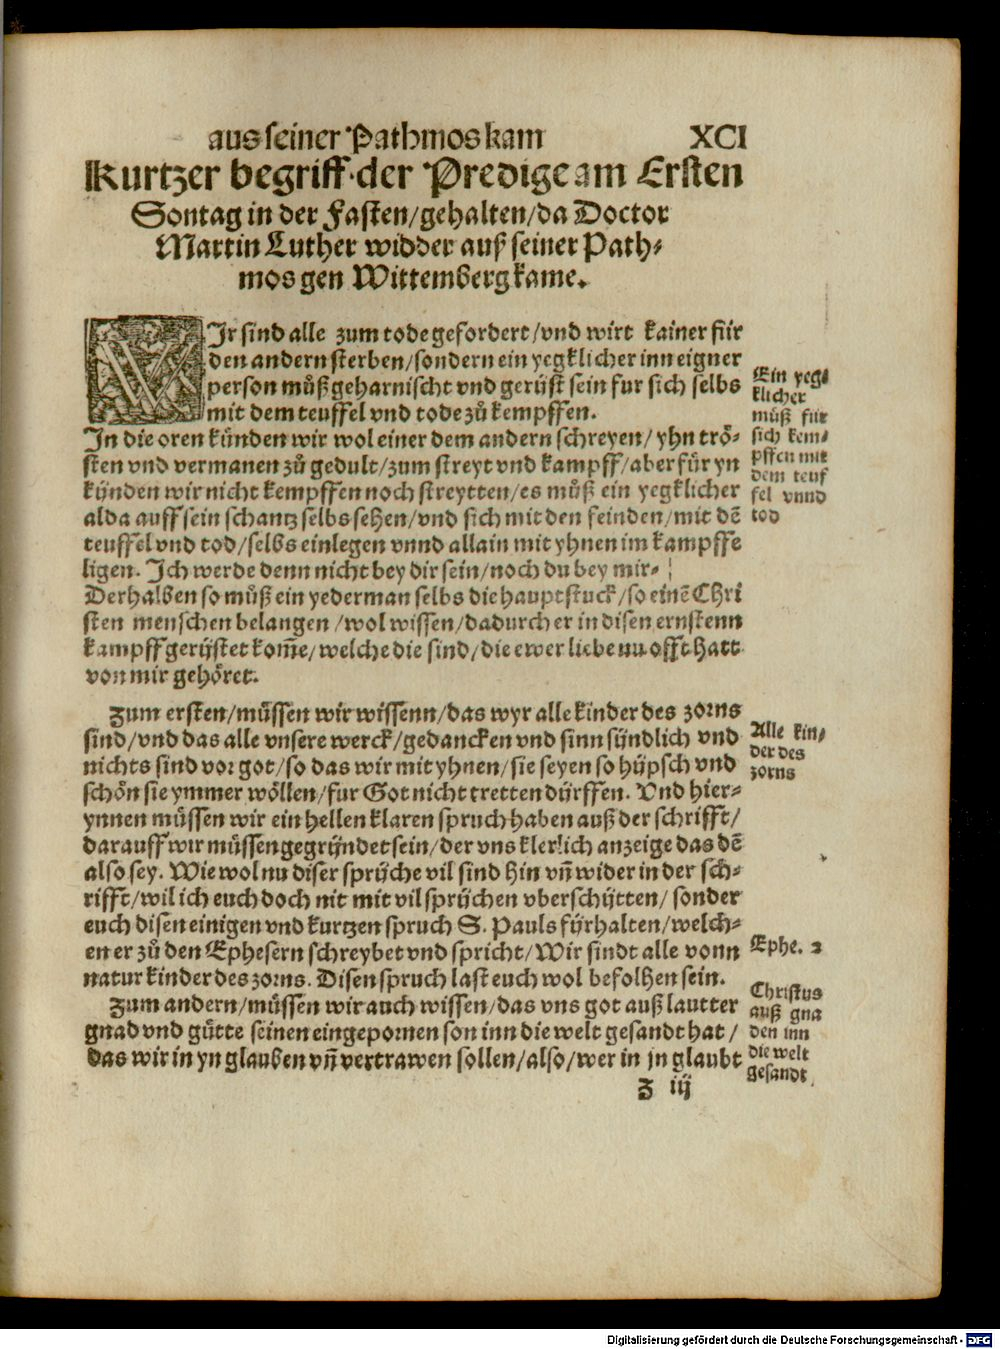 aus seiner Pathmos kam XCI
Kurtzer begriff der Predige am Ersten
Sontag in der Fasten/gehalten/da Doctor
Martin Luther widder auß seiner Path⸗
mos gen Wittemberg kame.
WIr sind alle zum tode gefordert/vnd wirt kainer für
den andern sterben/sondern ein yegklicher inn eigner
person můß geharnischt vnd gerüst sein fur sich selbs
mit dem teuffel vnd tode zů kempffen.
Ein yeg⸗
klicher
můß für
sich kem⸗
pffen mit
dem teuf
fel vnnd
tod
In die oren künden wir wol einer dem andern schreyen/ yhn trö⸗
sten vnd vermanen zů gedult/zum streyt vnd kampff/aber für yn
künden wir nicht kempffen noch streytten/es můß ein yegklicher
alda auff sein schantz selbs sehen/vnd sich mit den feinden/mit dē
teuffel vnd tod/selbs einlegen vnnd allain mit yhnen im kampffe
ligen. Ich werde denn nicht bey dir sein/noch du bey mir⸗
Derhalben so můß ein yederman selbs die hauptstuck/so einē Chri
sten menschen belangen/wol wissen/dadurch er in disen ernstenn
kampff gerüstet kom̄e/welche die sind/die ewer liebe nu offt hatt
von mir gehöret.
Zum ersten/müssen wir wissenn/das wyr alle kinder des zorns
sind/vnd das alle vnsere werck/gedancken vnd sinn sündlich vnd
nichts sind vor got/so das wir mit yhnen/sie seyen so hüpsch vnd
schön sie ymmer wöllen/fur Got nicht tretten dürffen. Vnd hier⸗
ynnen müssen wir ein hellen klaren spruch haben auß der schrifft/
darauff wir müssen gegründet sein/der vns klerlich anzeige das dē
also sey. Wie wol nu diser sprüche vil sind hin vn̄ wider in der sch⸗
rifft/wil ich euch doch nit mit vil sprüchen vberschütten/ sonder
euch disen einigen vnd kurtzen spruch S. Pauls fürhalten/welch⸗
en er zů den Ephesern schreybet vnd spricht/Wir sindt alle vonn
natur kinder des zorns. Disen spruch last euch wol befolhen sein.
Alle kin⸗
der des
zorns
Ephe. 2
Zum andern/müssen wir auch wissen/das vns got auß lautter
gnad vnd gütte seinen eingepornen son inn die welt gesandt hat/
das wir in yn glauben vn̄ vertrawen sollen/also/wer in jn glaubt
Christus
auß gna
den inn
die welt
gesandt
Z iij
Digitalisierung gefördert durch die Deutsche Forschungsgemeinschaft - DFG